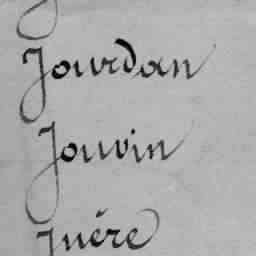 Jourdan
Jouvin
Juére